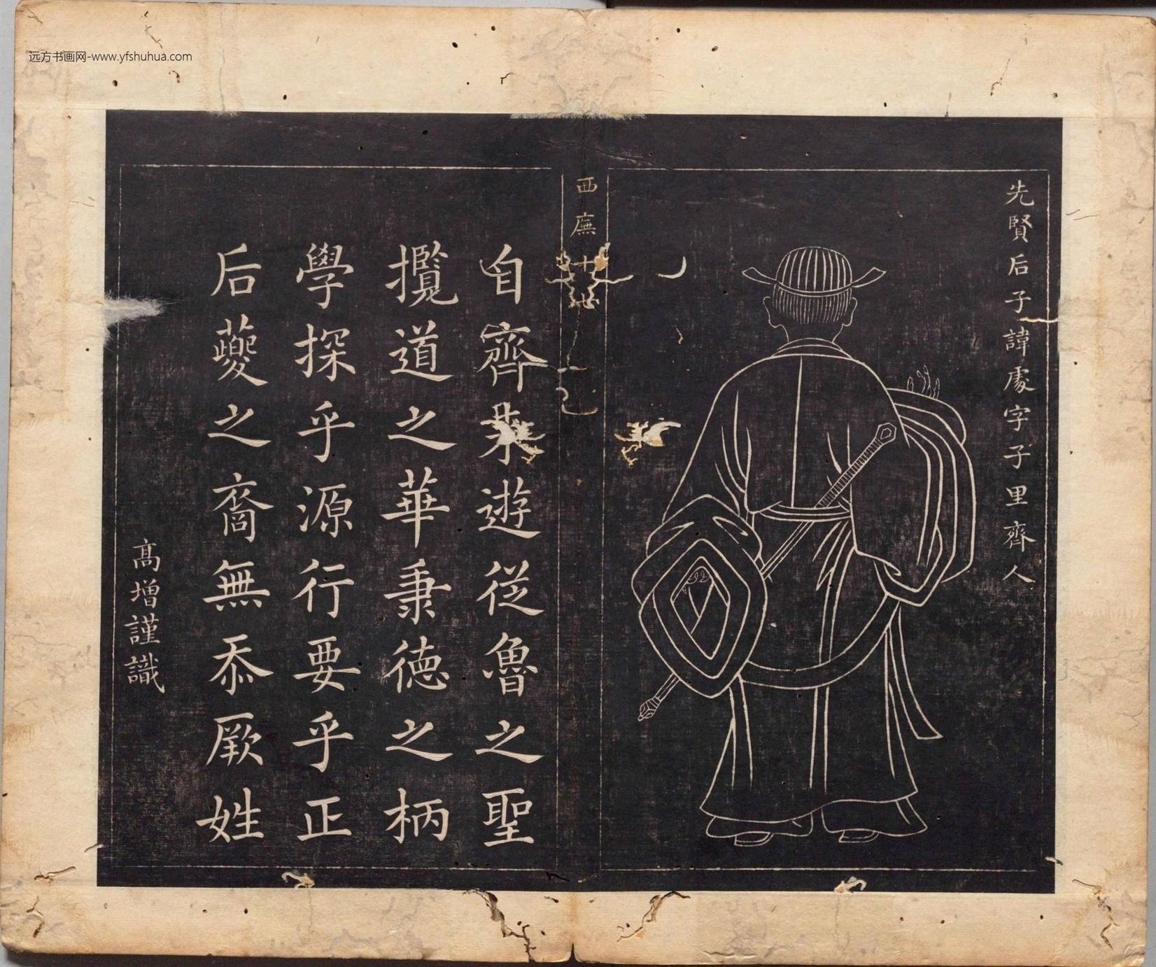 远方书画网-www.yfshuhua.com
先賢后子諱處字子里齊人
西廡十
自齊來遊從魯之聖
攬道之華秉德之柄
學探乎源行要乎正
后夔之裔無忝厥姓
高增謹識